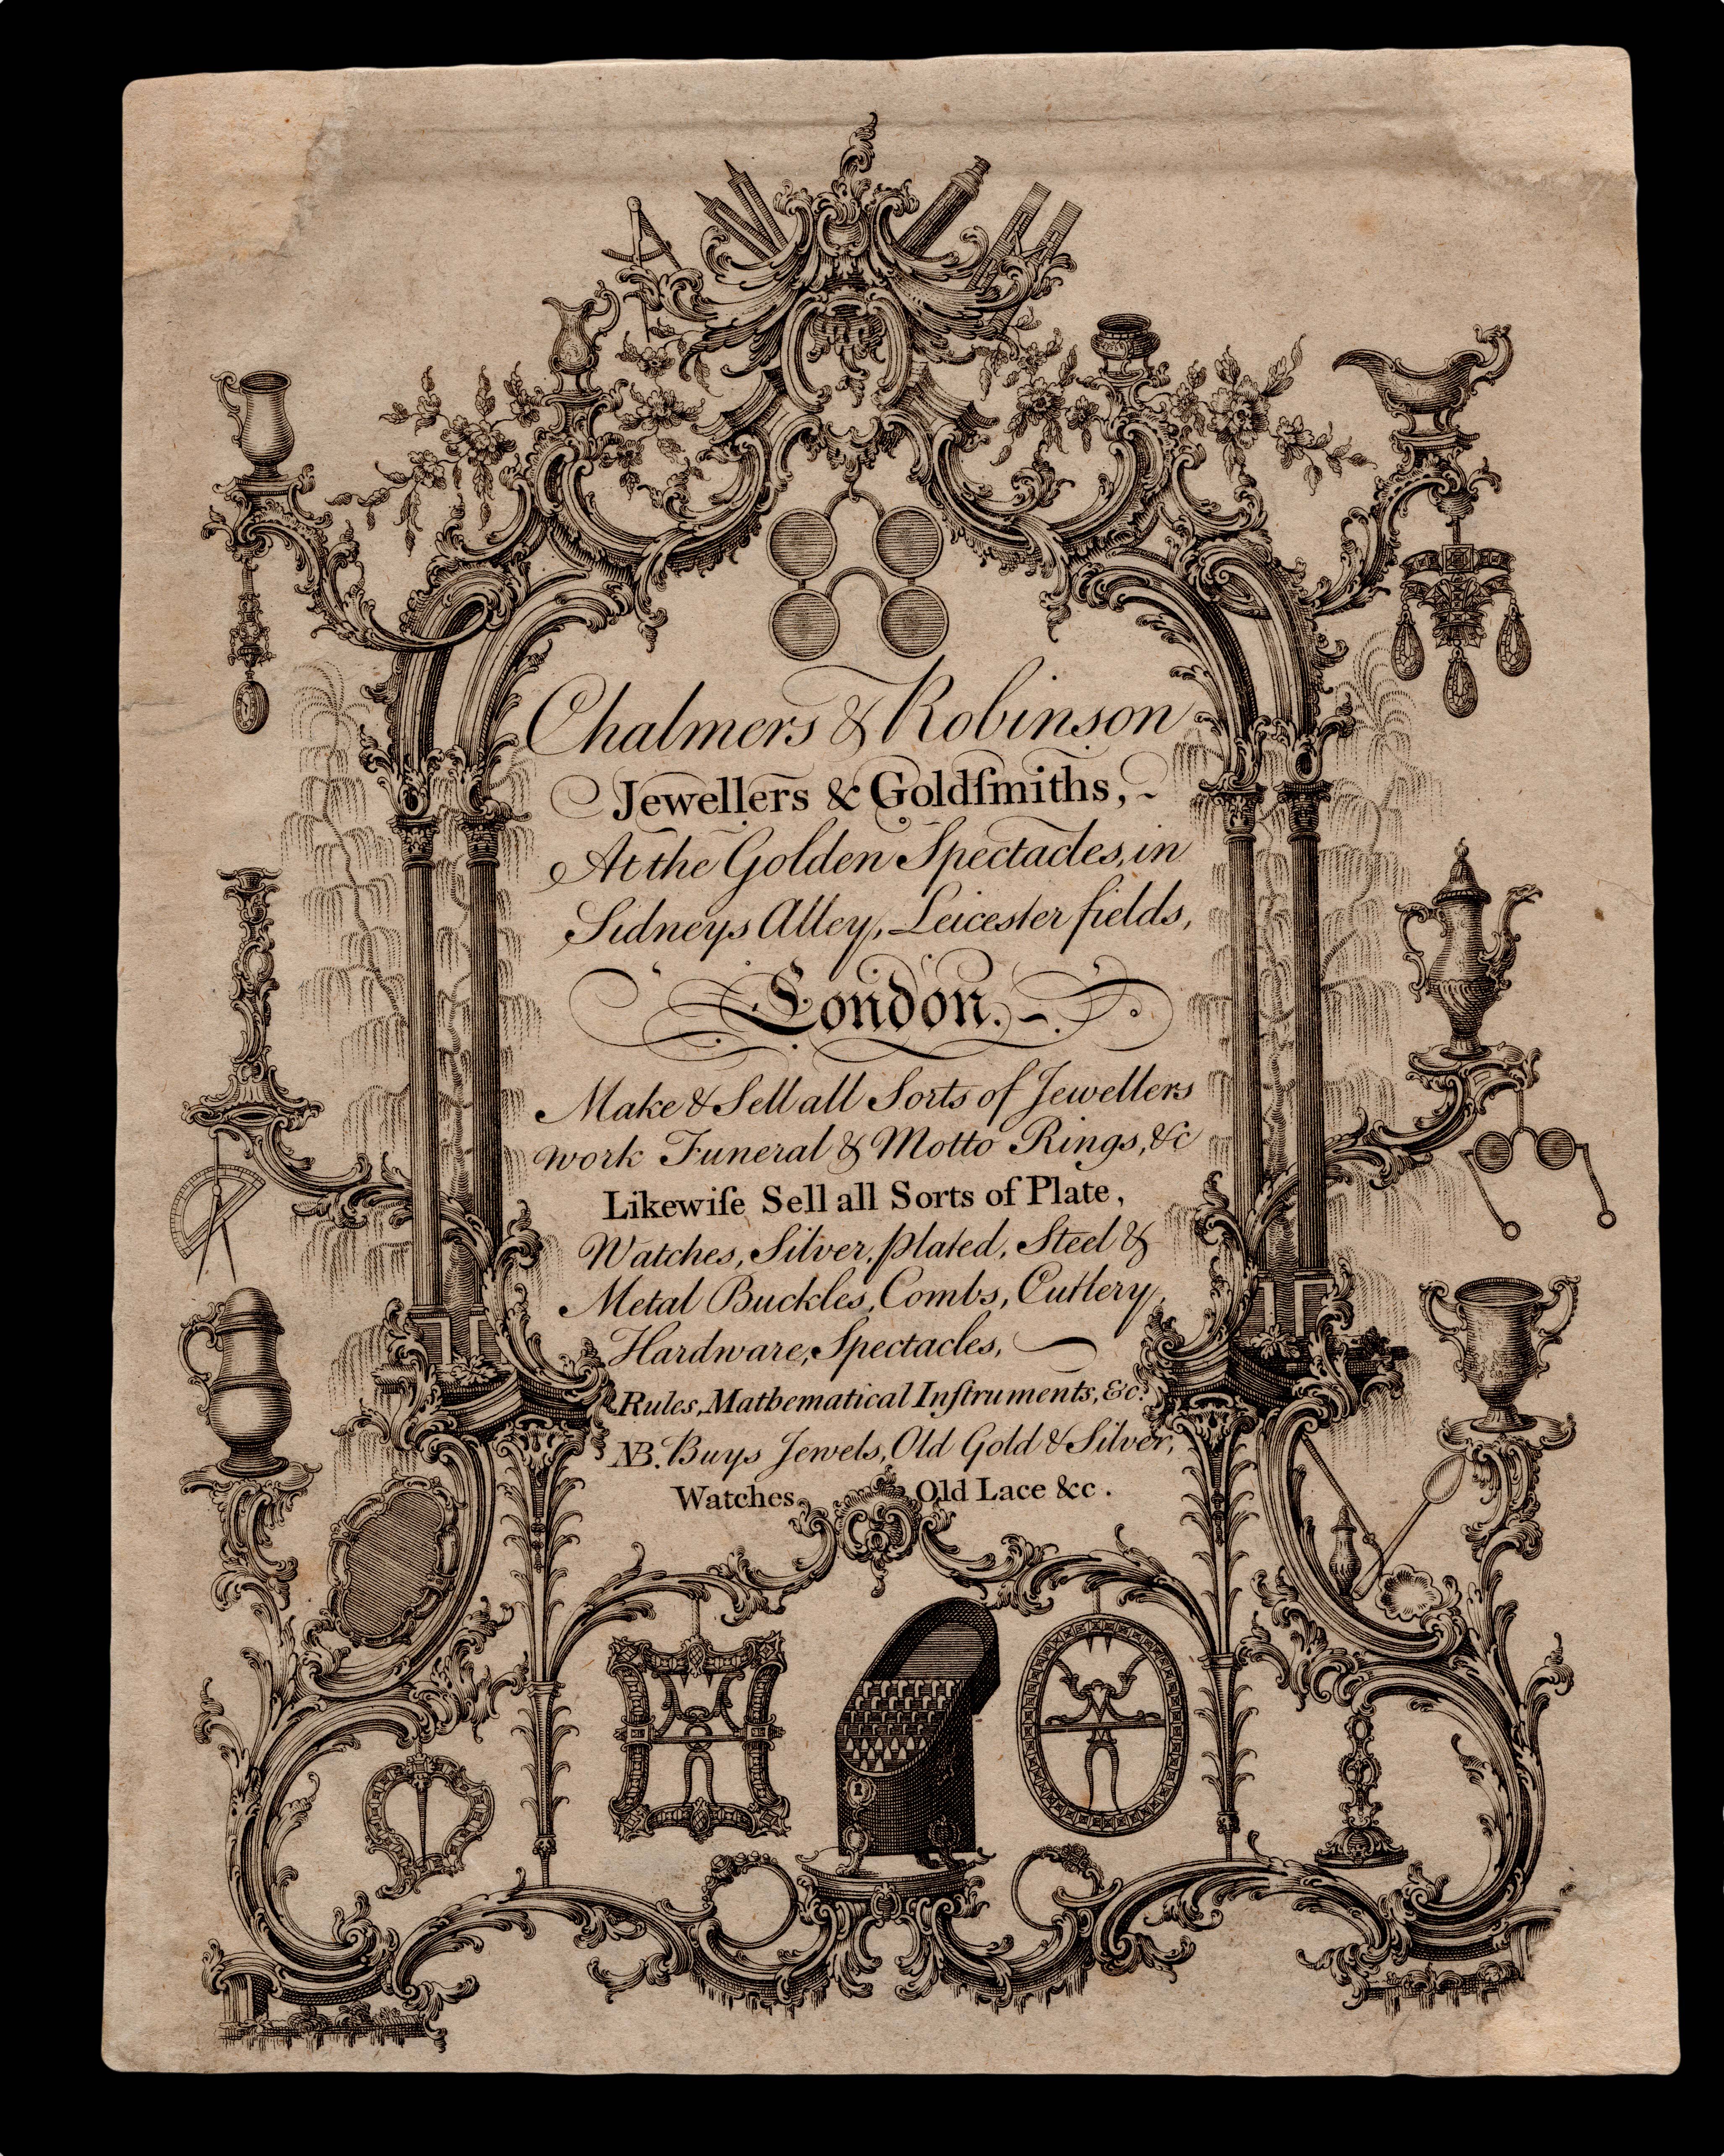 Chalmers & Robinson
Jewellers & Goldſmiths,
At the Golden Spectacles, in
Sidneys Alley, Leicester fields,
London.
Make & Sell all Sorts of Jewellers
work Funeral & Motto Rings, &c
Likewiſe Sell all Sorts of Plate,
Watches, Silver, plated, Steel &
Metal Buckles, Combs, Cutlery,
Hardware, Spectacles,
Rules, Mathematical Inſtruments, &c.
NB. Buys Jewels, Old Gold & Silver,
Watches, Old Lace &c.